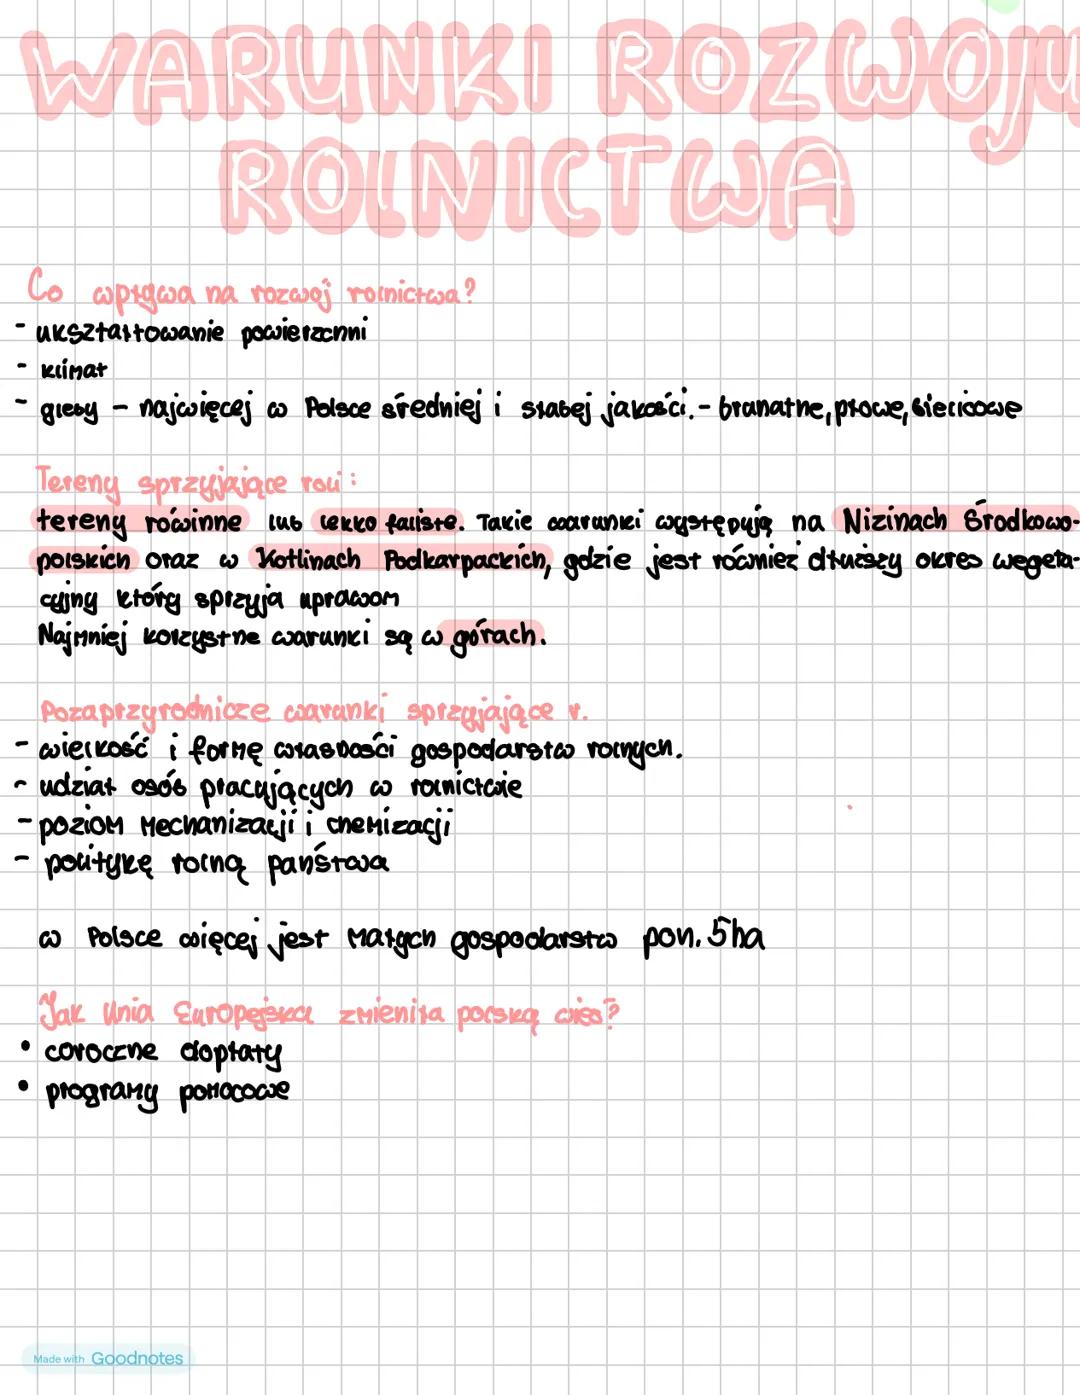 WARUNKI ROZWOJU
ROLNICTWA
Co wpływa na rozwój rolnictwa?
- ukształtowanie powierzchni
- klimat
- gleby - najwięcej w Polsce średniej i słabej jakości. - brunatne, płowe, bielicowe
Tereny sprzyjające roli:
tereny równinne lub lekko faliste. Takie warunki występują na Nizinach Środkowo-
polskich oraz w Kotlinach Podkarpackich, gdzie jest również dłuższy okres wegeta-
cyjny który sprzyja uprawom
Najmniej korzystne warunki są w górach.
Pozaprzyrodnicze warunki sprzyjające r.
- wielkość i formę własności gospodarstw rolnych.
- udział osób pracujących w rolnictwie
- poziom mechanizacji i chemizacji
- politykę rolną państwa
w Polsce więcej jest małych gospodarstw pon. 5ha
Jak Unia Europejska zmieniła polską wieś?
• coroczne dopłaty
• programy pomocowe
Made with Goodnotes